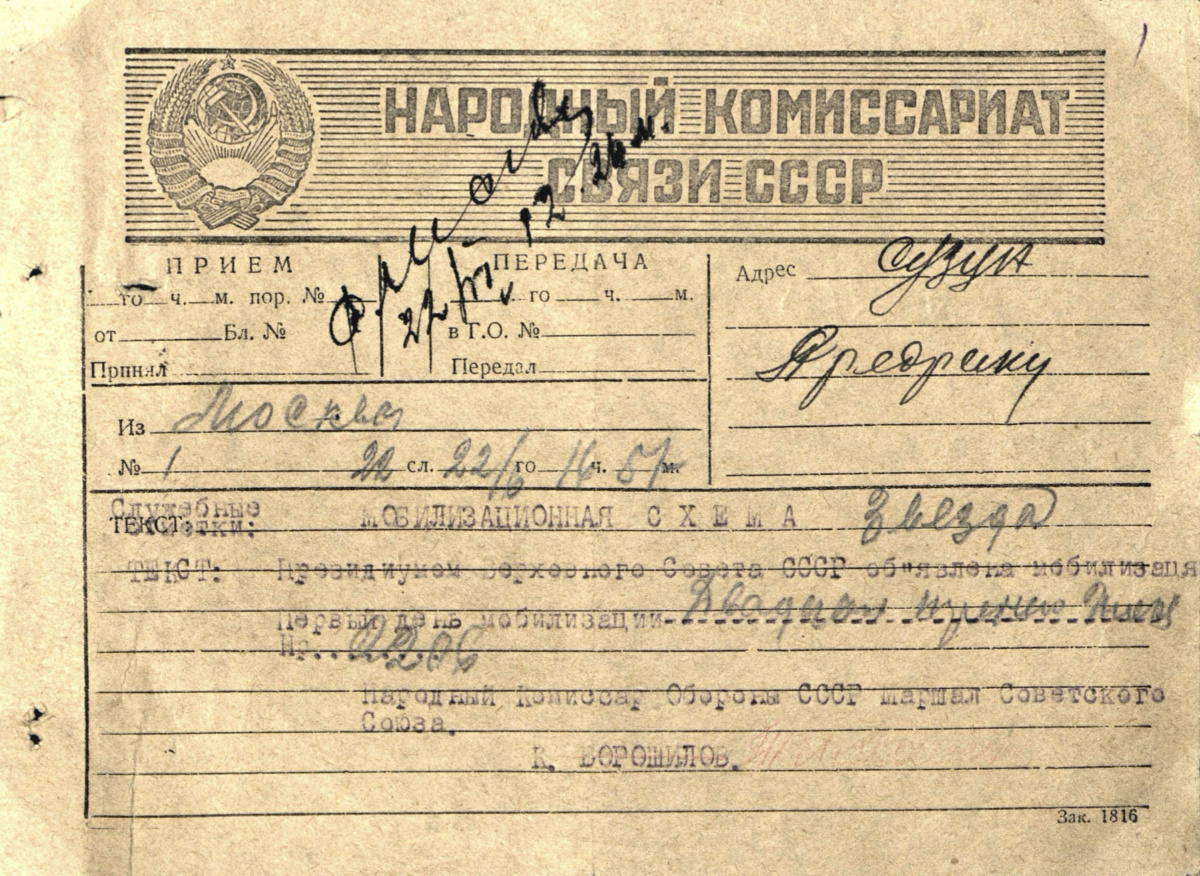 НАРОДНЫЙ КОМИССАРИАТ
СВЯЗИ СССР
22/VI 12. 26 м.
ПРИЕМ
го ч. м. пор. №
от Бл. №
Принял
ПЕРЕДАЧА
го ч. м.
в Г.О. №
Передал
Адрес Сузун
Из Москва
№ 1 22 сл. 22/6 го 16 ч. 57 м.
Служебные
отметки: МОБИЛИЗАЦИОННАЯ С Х Е М А Звезда
ТЕКСТ:
ТЕКСТ: Президиумом Верховного Совета СССР об"явлена мобилизация
Первый день мобилизации Двадцать третье июня
Нр. 2206
Народный Комиссар Обороны СССР Маршал Советского
Союза.
К. ВОРОШИЛОВ.
Зак. 1816